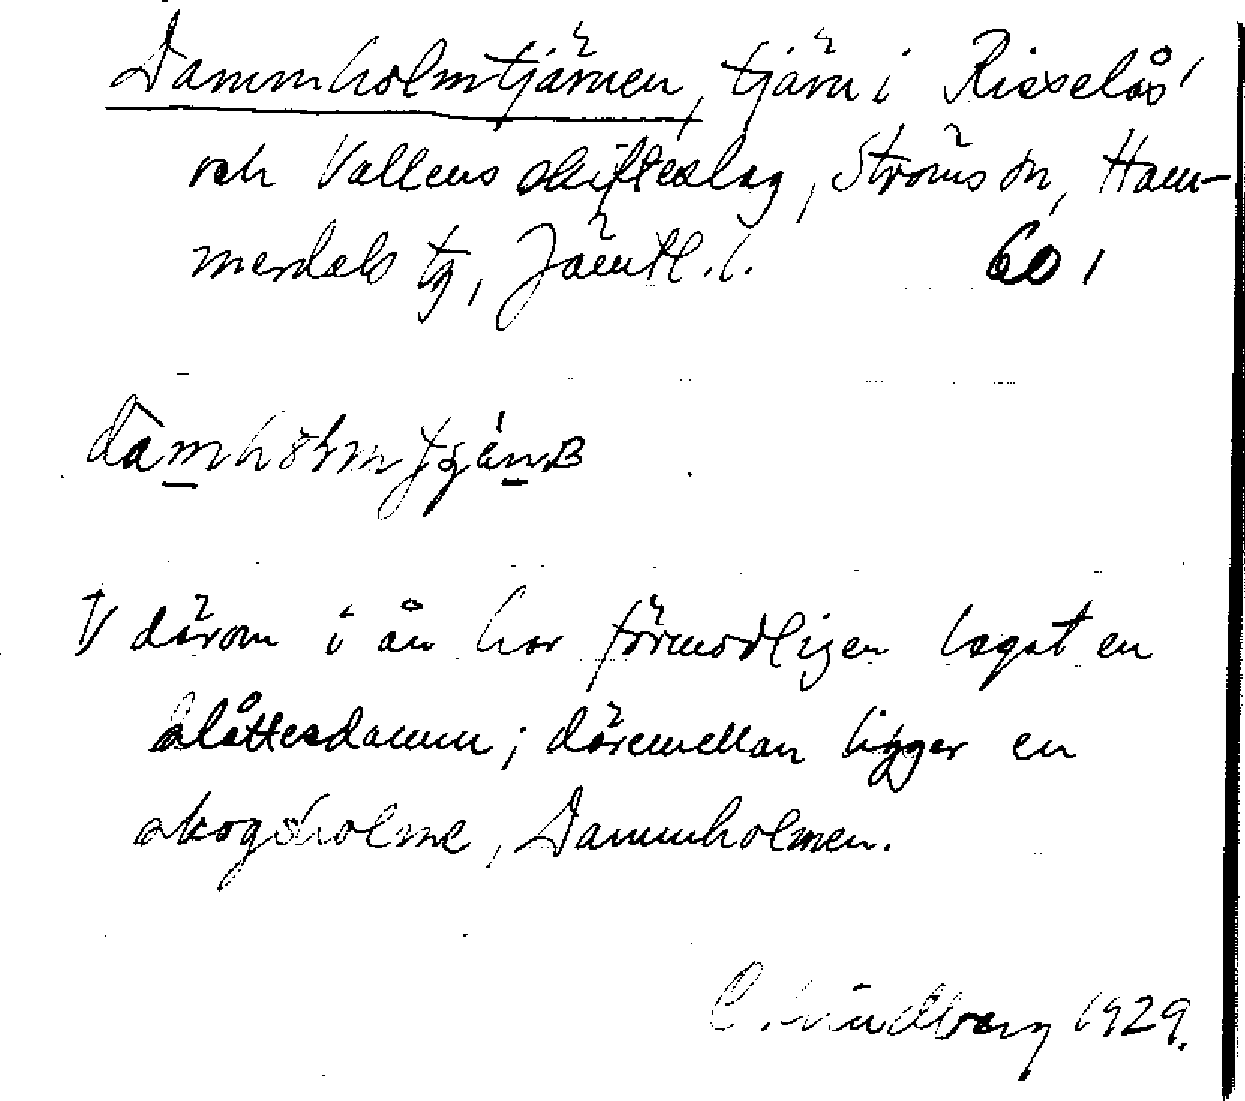 Dammholmtjärnen, tjärn i Risselås
och Vallens skifteslag, Ströms sn, Ham-
merdals tg, Jämtl. l. 60
V därom i ån har förmodligen legat en
slåttesdamm; däremellan ligger en
skogsholme, Dammholmen.
C. Lindberg 1929.